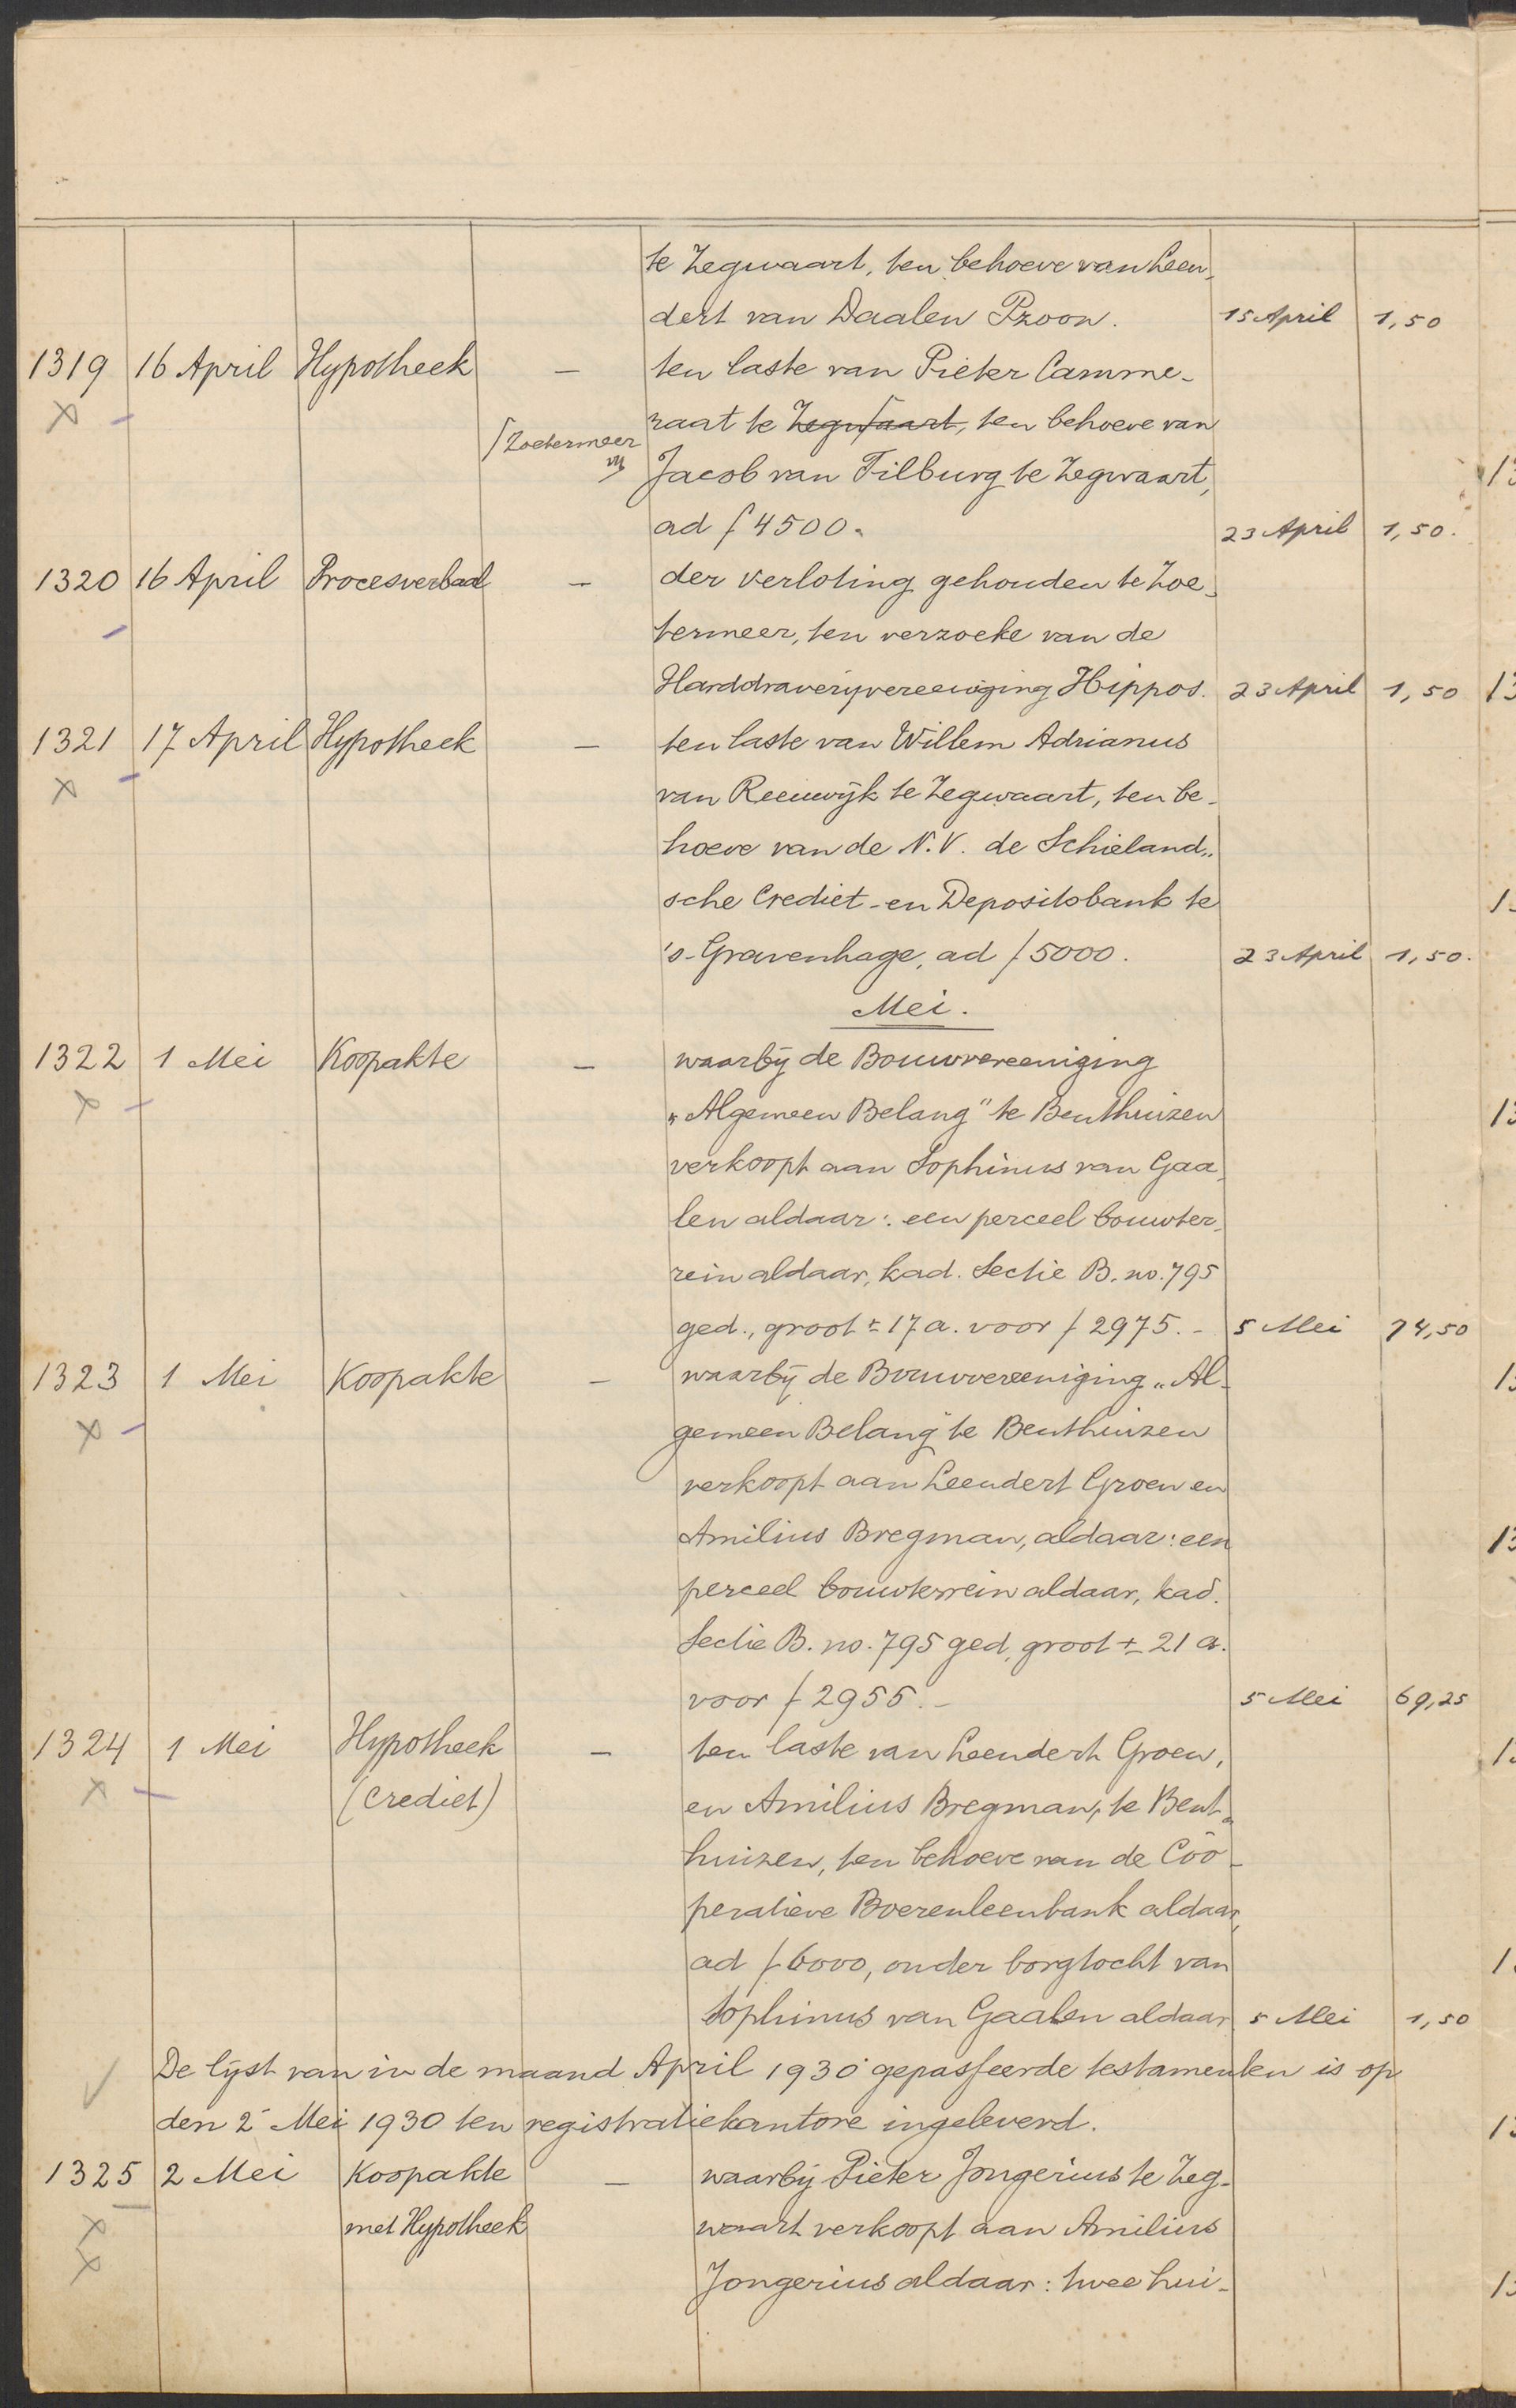 te Zegwaart, ten behoeve van Leen-
dert van Daalen Pzoon. 15 April 1,50
1319 16 April Hypotheek — ten laste van Pieter Camme-
raat te Zegwaart, ten behoeve van
Zoetermeer
Jacob van Tilburg te Zegwaart,
ad ƒ 4500.- 23 April 1,50.
1320 16 April Procesverbaal — der verloting gehouden te Zoe-
termeer, ten verzoeke van de
Harddraverijvereeniging Hippos. 23 April 1,50
1321 17 April Hypotheek — ten laste van Willem Adrianus
van Reeuwijk te Zegwaart, ten be-
hoeve van de N.V. de Schieland-
sche Crediet- en Depositobank te
's-Gravenhage, ad ƒ 5000. 23 April 1,50.
Mei.
1322 1 Mei Koopakte — waarbij de Bouwvereeniging
„Algemeen Belang" te Benthuizen
verkoopt aan Sophinus van Gaa-
len aldaar: een perceel bouwter-
rein aldaar, kad. Sectie B. no. 795
ged., groot ± 17 a. voor ƒ 2975.- 5 Mei 74,50
1323 1 Mei Koopakte — waarbij de Bouwvereeniging „Al-
gemeen Belang" te Benthuizen
verkoopt aan Leendert Groen en
Amilius Bregman, aldaar: een
perceel bouwterrein aldaar, kad.
Sectie B. no. 795 ged, groot ± 21 a.
voor ƒ 2955.- 5 Mei 69,25
1324 1 Mei Hypotheek — ten laste van Leendert Groen,
(Crediet) en Amilius Bregman, te Bent-
huizen, ten behoeve van de Coö-
peratieve Boerenleenbank aldaar,
ad ƒ 6000, onder borgtocht van
Sophinus van Gaalen aldaar 5 Mei 1,50
De lijst van in de maand April 1930 gepasseerde testamenten is op
den 2 Mei 1930 ten registratiekantore ingeleverd.
1325 2 Mei Koopakte — waarbij Pieter Jongerius te Zeg-
met Hypotheek waart verkoopt aan Amilius
Jongerius aldaar: twee hui-